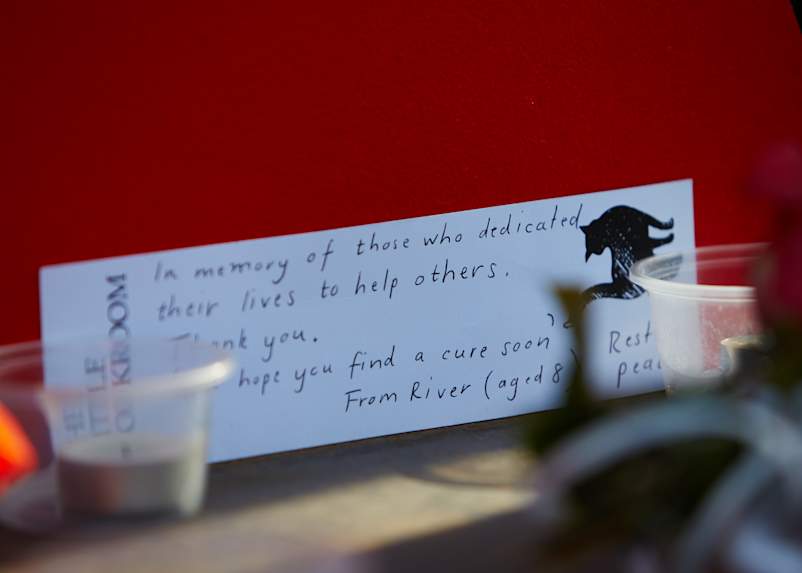 In memory of those who dedicated
their lives to help others.
Thank you.
hope you find a cure soon
From River (aged 8)
Rest